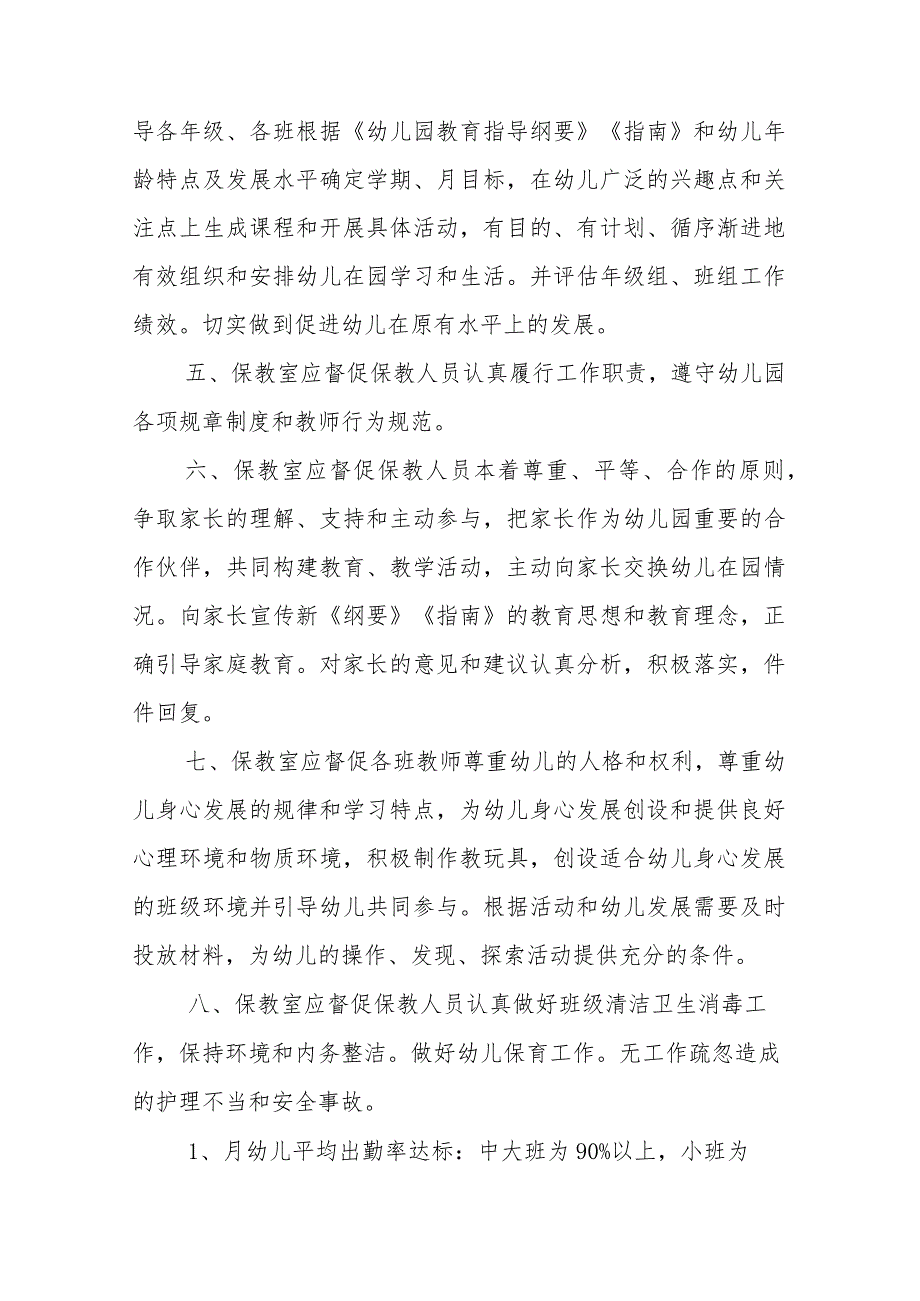 导各年级、各班根据《幼儿园教育指导纲要》《指南》和幼儿年
龄特点及发展水平确定学期、月目标，在幼儿广泛的兴趣点和关
注点上生成课程和开展具体活动，有目的、有计划、循序渐进地
有效组织和安排幼儿在园学习和生活。并评估年级组、班组工作
绩效。切实做到促进幼儿在原有水平上的发展。
五、保教室应督促保教人员认真履行工作职责，遵守幼儿园
各项规章制度和教师行为规范。
六、保教室应督促保教人员本着尊重、平等、合作的原则，
争取家长的理解、支持和主动参与，把家长作为幼儿园重要的合
作伙伴，共同构建教育、教学活动，主动向家长交换幼儿在园情
况。向家长宣传新《纲要》《指南》的教育思想和教育理念，正
确引导家庭教育。对家长的意见和建议认真分析，积极落实，件
件回复。
七、保教室应督促各班教师尊重幼儿的人格和权利，尊重幼
儿身心发展的规律和学习特点，为幼儿身心发展创设和提供良好
心理环境和物质环境，积极制作教玩具，创设适合幼儿身心发展
的班级环境并引导幼儿共同参与。根据活动和幼儿发展需要及时
投放材料，为幼儿的操作、发现、探索活动提供充分的条件。
八、保教室应督促保教人员认真做好班级清洁卫生消毒工
作，保持环境和内务整洁。做好幼儿保育工作。无工作疏忽造成
的护理不当和安全事故。
1、月幼儿平均出勤率达标：中大班为90%以上，小班为